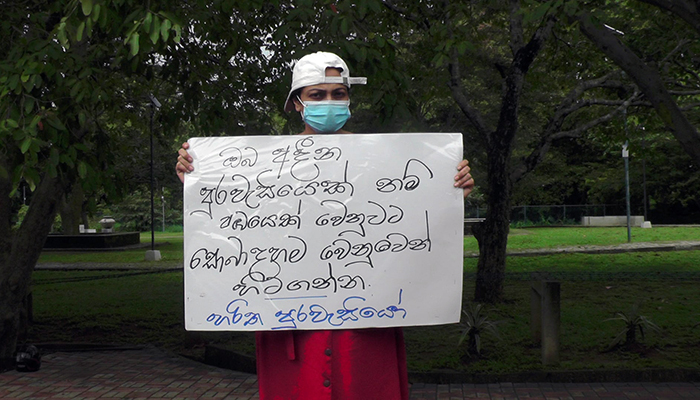 ඔබ අදීන
පුරවැසියෙක් නම්
පඹයෙක් වෙනුවට
සොබාදහම වෙනුවෙන්
හිටගන්න.
හරිත පුරවැසියෝ